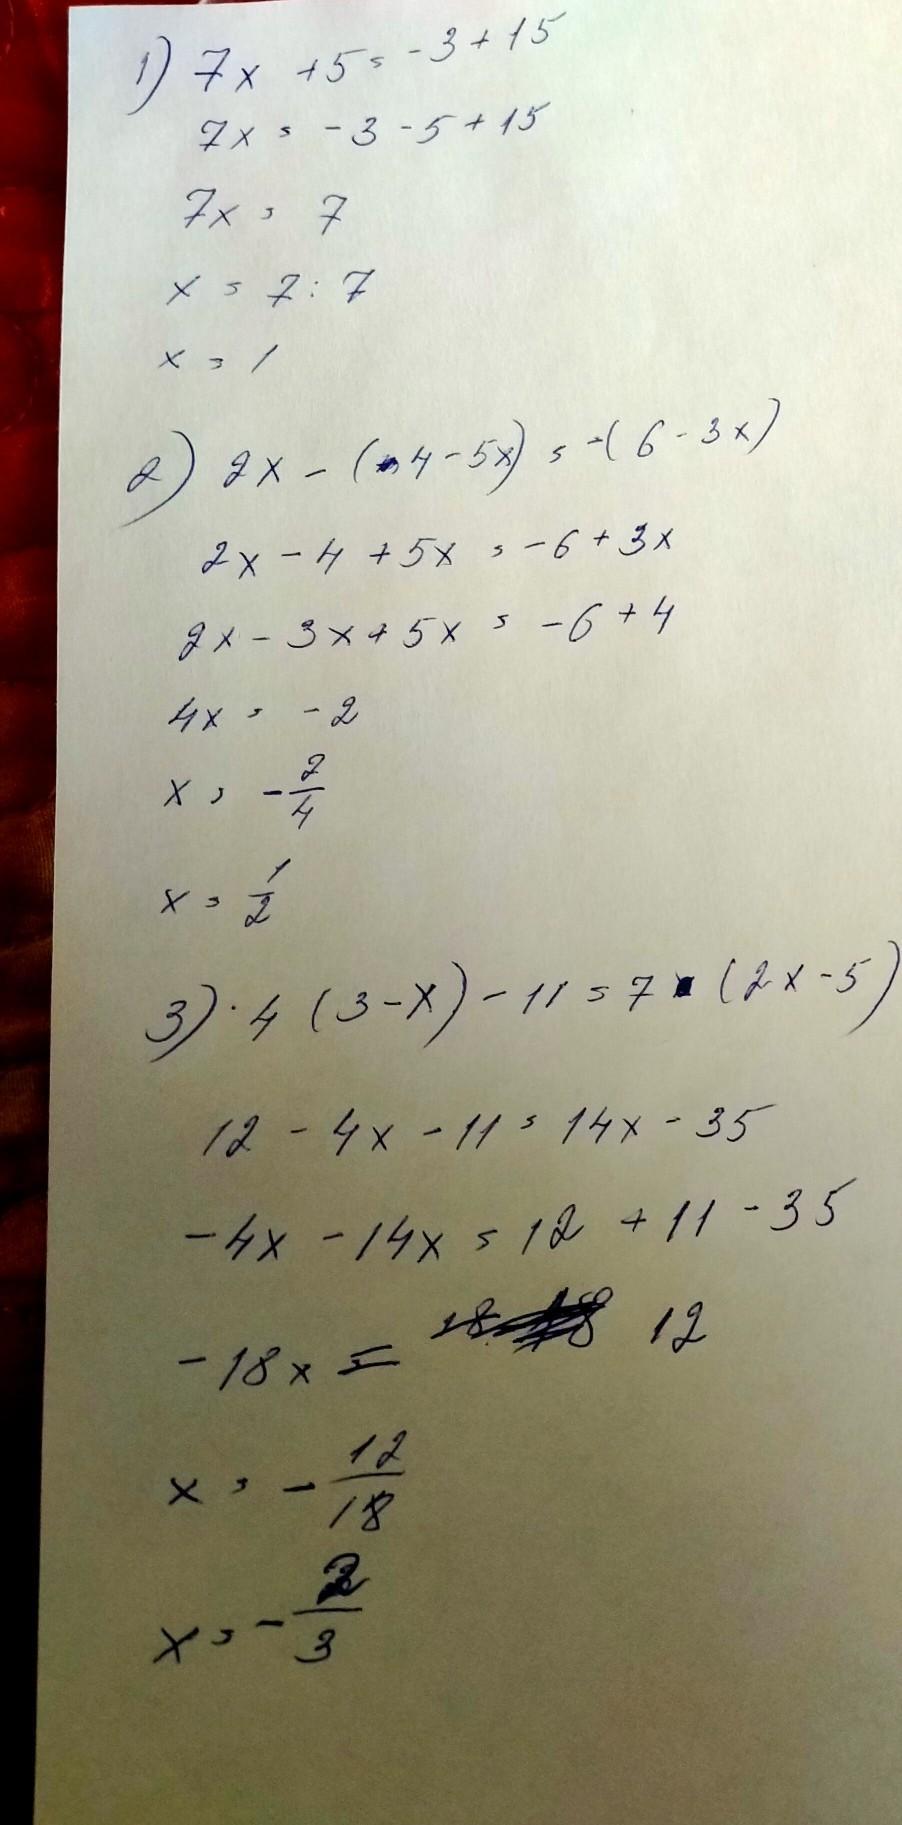 1) 7x + 5 = -3 + 15
7x = -3 - 5 + 15
7x = 7
x = 7 : 7
x = 1
2) 2x - (4 - 5x) = -(6 - 3x)
2x - 4 + 5x = -6 + 3x
2x - 3x + 5x = -6 + 4
4x = -2
x = -2/4
x = 1/2
3) 4 (3 - x) - 11 = 7 (2x - 5)
12 - 4x - 11 = 14x - 35
-4x - 14x = 12 + 11 - 35
-18x = 12
x = -12/18
x = -2/3